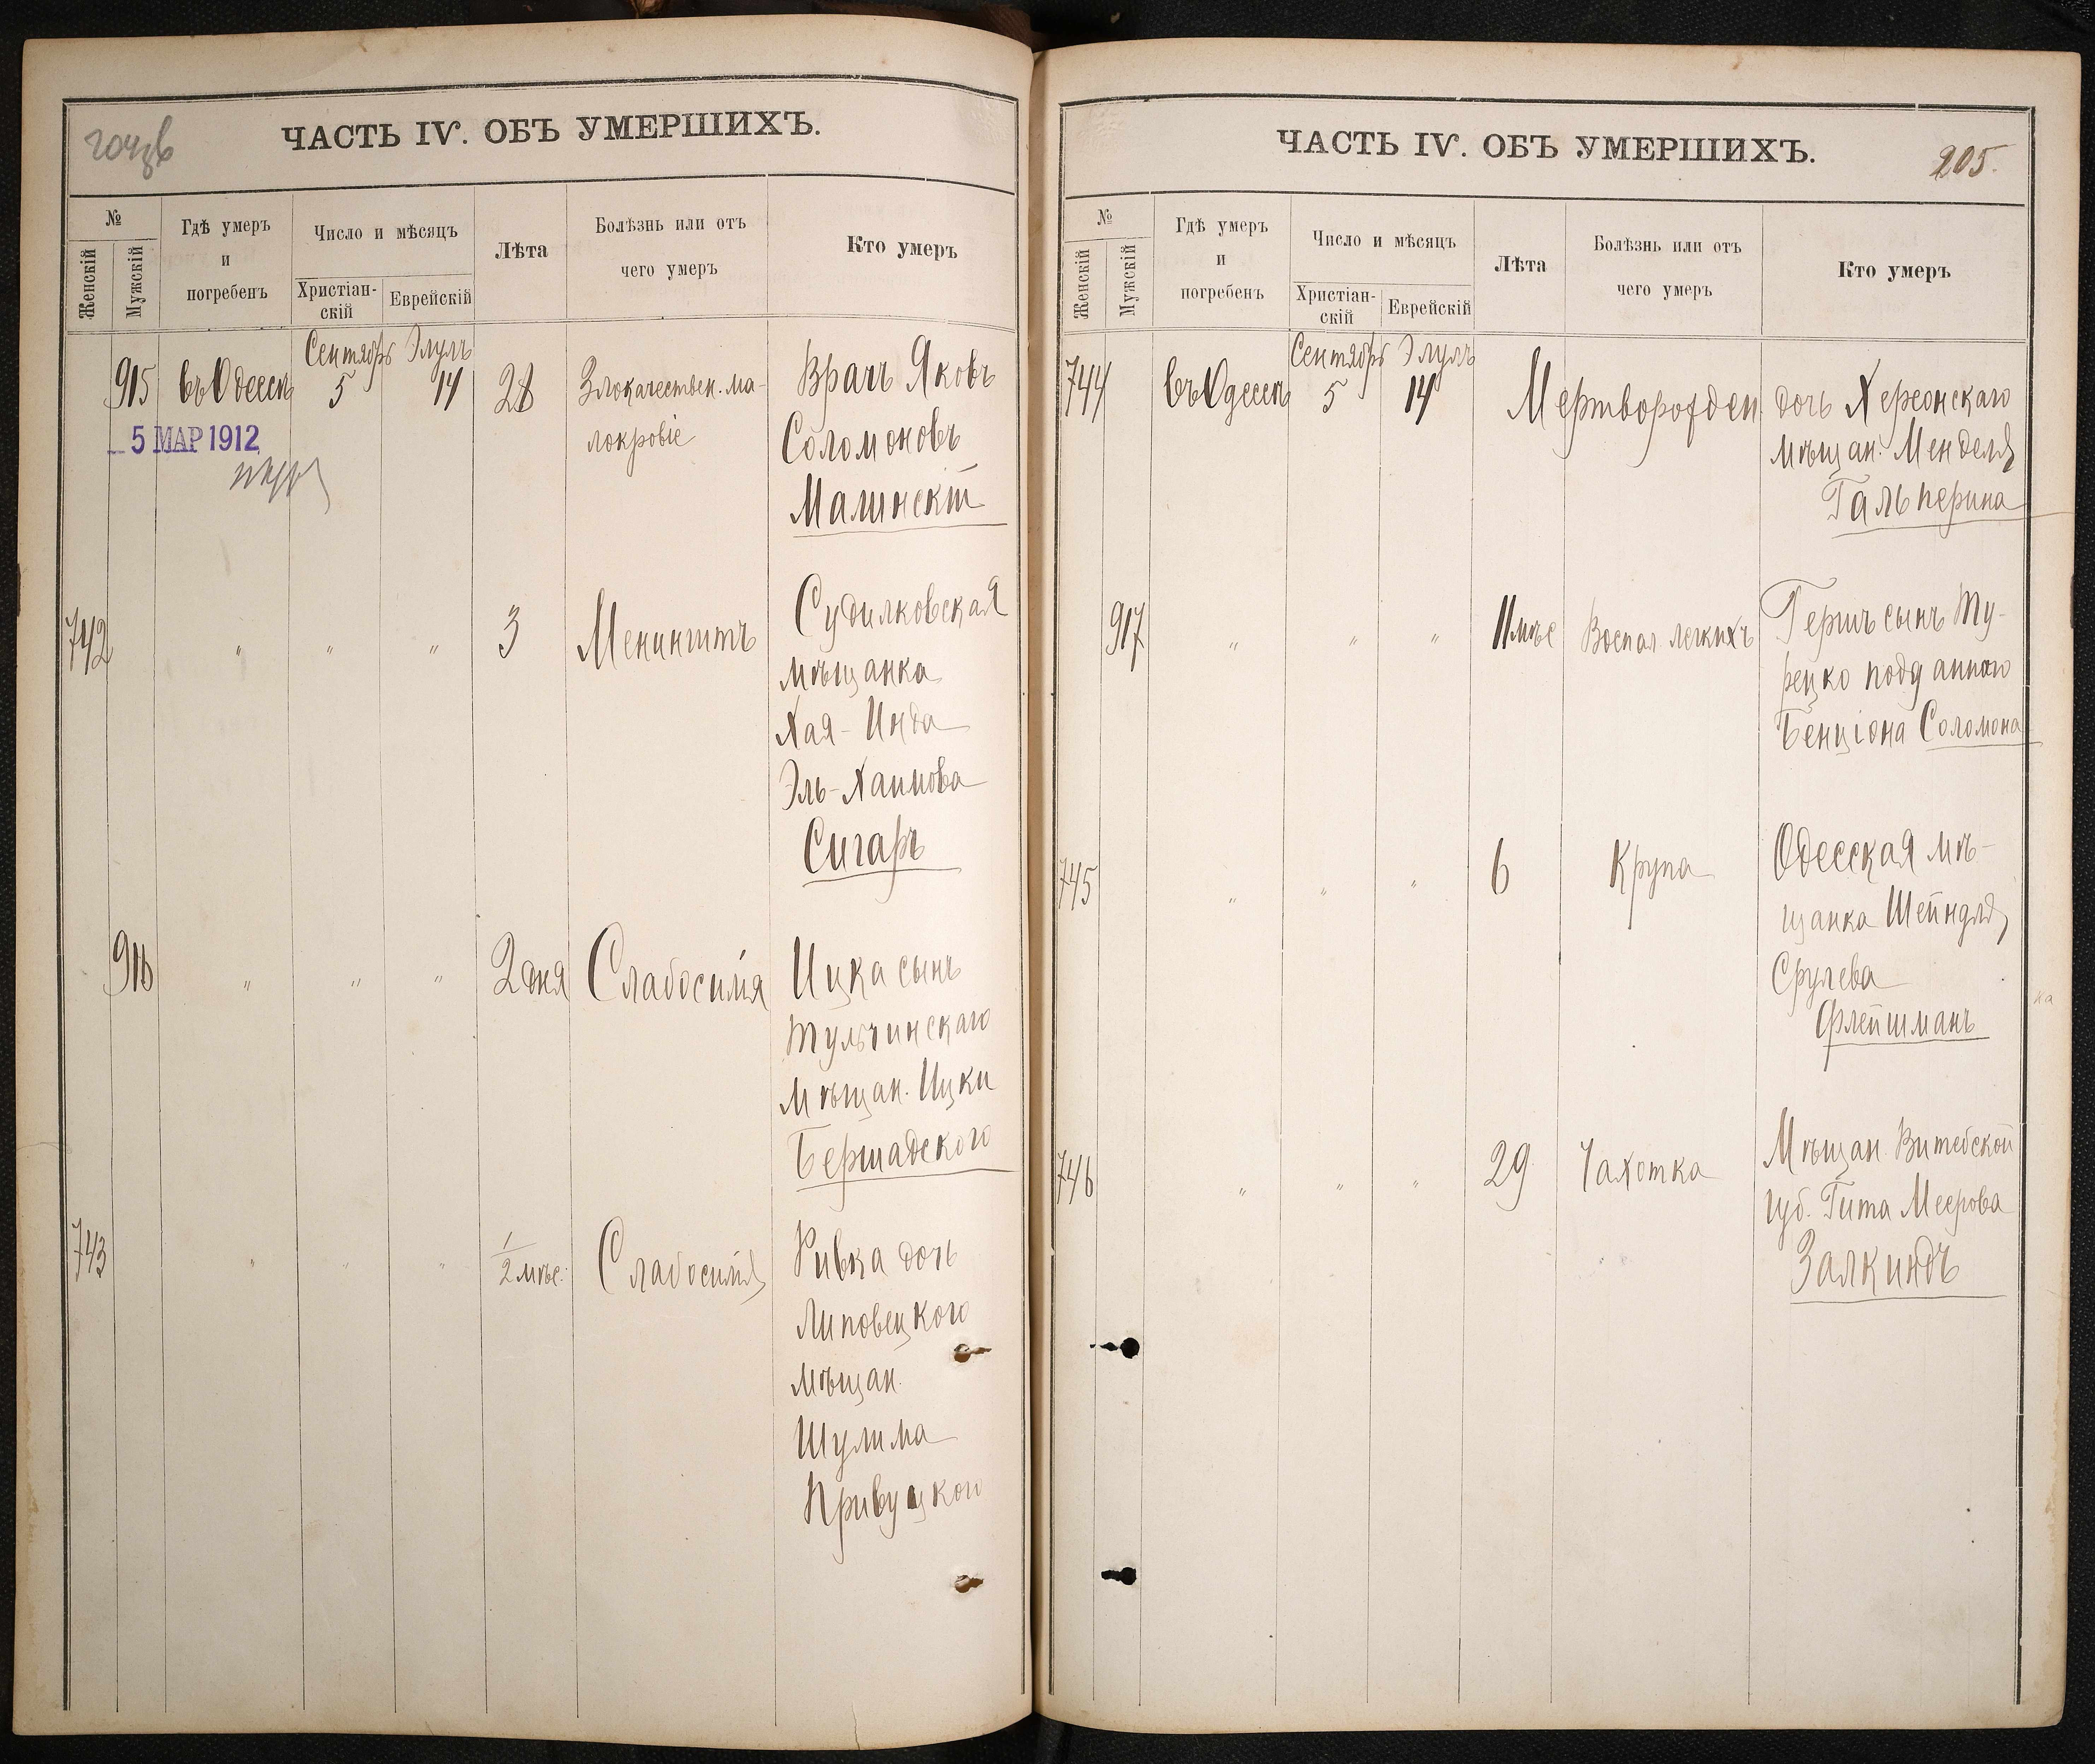 ЧАСТЬ IV. ОБЪ УМЕРШИХЪ.
№
Женскій
Мужскій
Гдѣ умеръ
и
погребенъ
Число и мѣсяцъ
Христіан-
скій
Еврейскій
Лѣта
Болѣзнь или отъ
чего умеръ
Кто умеръ
Сентябрь Элулъ
915 въ Одессѣ 5 14 28 Злокачествен. ма-
локровіе
5 МАР 1912
Врачъ Яковъ
Соломоновъ
Малинскій
742 " " " 3 Менингитъ
Судилковская
мѣщанка
Хая-Инда
Эль-Хаимова
Сигаръ
916 " " " 2 дня Слабосилія
Ицка сынъ
Тульчинскаго
мѣщан. Ицки
Бершадского
743 " " " 1/2 мѣс. Слабосилія
Ривка дочь
Липовецкого
мѣщан.
Шулима
Кривуцкого
ЧАСТЬ IV. ОБЪ УМЕРШИХЪ.
205.
№
Женскій
Мужскій
Гдѣ умеръ
и
погребенъ
Число и мѣсяцъ
Христіан-
скій
Еврейскій
Лѣта
Болѣзнь или отъ
чего умеръ
Кто умеръ
Сентябрь Элулъ
744 въ Одессѣ 5 14 Мертворожден
дочь Херсонскаго
мѣщан. Менделя
Гальперина
917 " " " 11 мѣс Воспал. легкихъ
Гершъ сынъ Ту-
рецко подданного
Бенціона Соломона
745 " " " 6 Крупа
Одесская мѣ-
щанка Шейндля
Срулева
Флейшманъ
746 " " " 29 Чахотка
Мѣщан. Витебской
губ. Гита Меерова
Залкиндъ